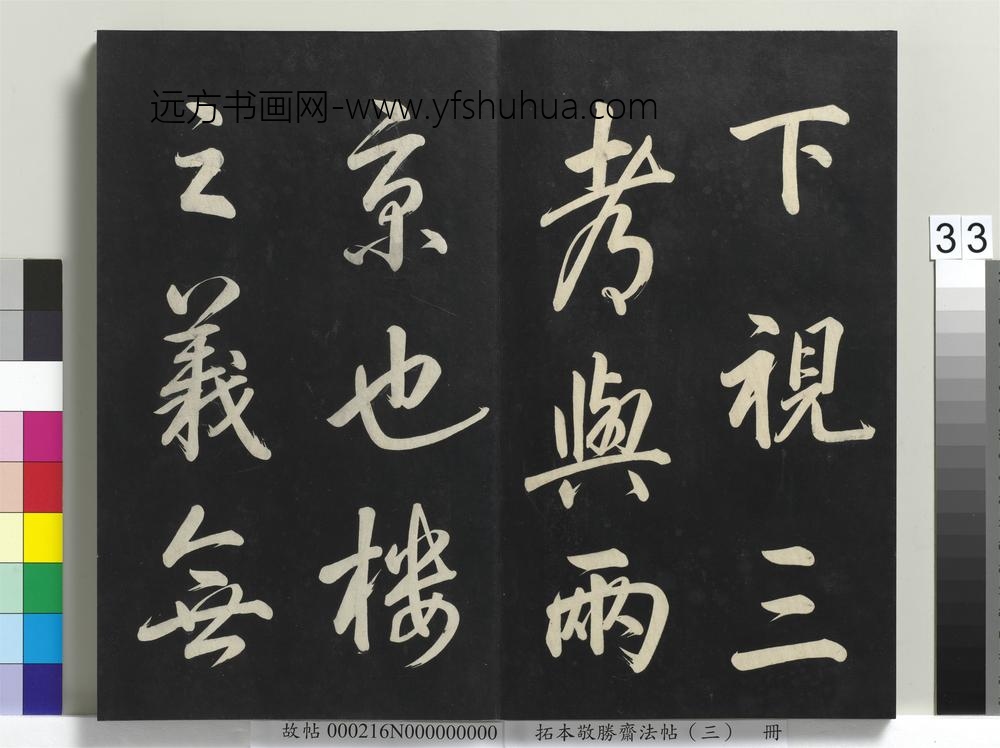 下視三
考與兩
京也樓
之義無
远方书画网-www.yfshuhua.com
33
故帖 000216N000000000 拓本敬勝齋法帖（三） 冊